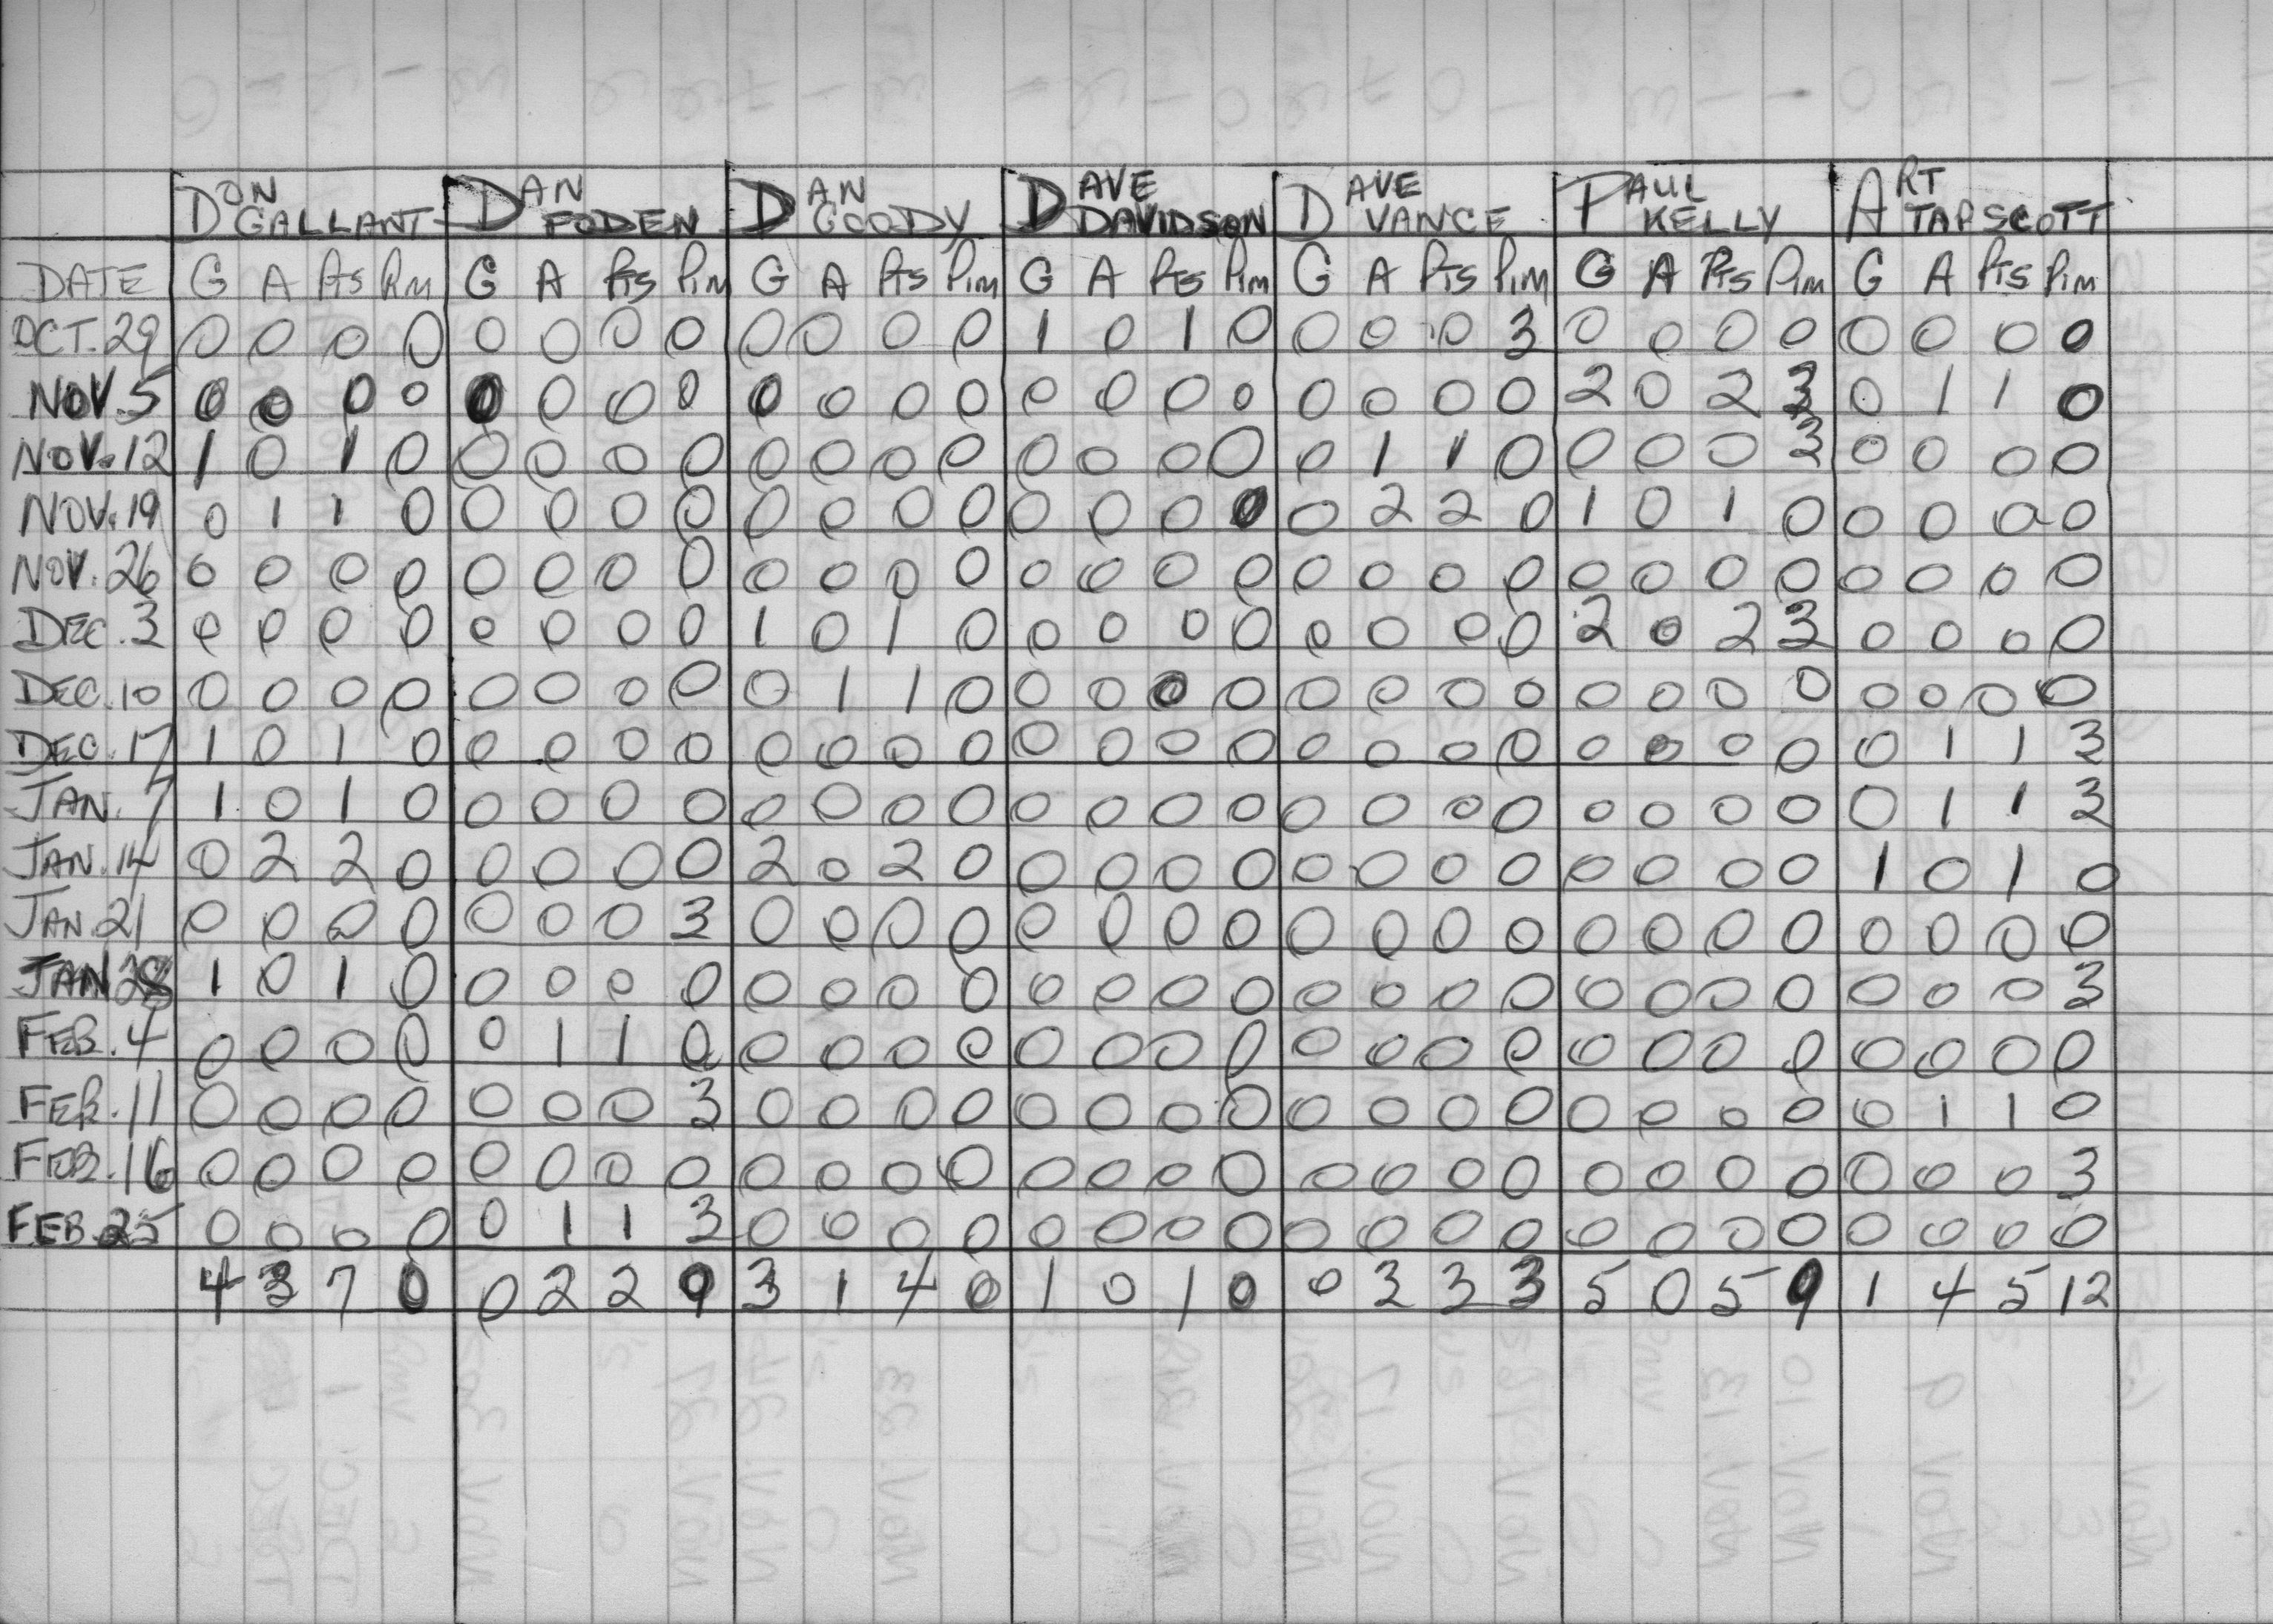 DON GALLANT DAN FODEN DAN GOODY DAVE DAVIDSON DAVE VANCE PAUL KELLY ART TAPSCOTT
DATE G A Pts Pim G A Pts Pim G A Pts Pim G A Pts Pim G A Pts Pim G A Pts Pim G A Pts Pim
OCT. 29 0 0 0 0 0 0 0 0 0 0 0 0 1 0 1 0 0 0 0 3 0 0 0 0 0 0 0 0
NOV. 5 0 0 0 0 0 0 0 0 0 0 0 0 0 0 0 0 0 0 0 0 2 0 2 3 0 1 1 0
NOV. 12 1 0 1 0 0 0 0 0 0 0 0 0 0 0 0 0 0 1 1 0 0 0 0 3 0 0 0 0
NOV. 19 0 1 1 0 0 0 0 0 0 0 0 0 0 0 0 0 0 2 2 0 1 0 1 0 0 0 0 0
NOV. 26 0 0 0 0 0 0 0 0 0 0 0 0 0 0 0 0 0 0 0 0 0 0 0 0 0 0 0 0
DEC. 3 0 0 0 0 0 0 0 0 1 0 1 0 0 0 0 0 0 0 0 0 2 0 2 3 0 0 0 0
DEC. 10 0 0 0 0 0 0 0 0 0 1 1 0 0 0 0 0 0 0 0 0 0 0 0 0 0 0 0 0
DEC. 17 1 0 1 0 0 0 0 0 0 0 0 0 0 0 0 0 0 0 0 0 0 0 0 0 0 1 1 3
JAN. 7 1 0 1 0 0 0 0 0 0 0 0 0 0 0 0 0 0 0 0 0 0 0 0 0 0 1 1 3
JAN. 14 0 2 2 0 0 0 0 0 2 0 2 0 0 0 0 0 0 0 0 0 0 0 0 0 1 0 1 0
JAN 21 0 0 0 0 0 0 0 3 0 0 0 0 0 0 0 0 0 0 0 0 0 0 0 0 0 0 0 0
JAN 28 1 0 1 0 0 0 0 0 0 0 0 0 0 0 0 0 0 0 0 0 0 0 0 0 0 0 0 3
FEB. 4 0 0 0 0 0 1 1 0 0 0 0 0 0 0 0 0 0 0 0 0 0 0 0 0 0 0 0 0
FEB. 11 0 0 0 0 0 0 0 3 0 0 0 0 0 0 0 0 0 0 0 0 0 0 0 0 0 1 1 0
FEB. 16 0 0 0 0 0 0 0 0 0 0 0 0 0 0 0 0 0 0 0 0 0 0 0 0 0 0 0 3
FEB. 25 0 0 0 0 0 1 1 3 0 0 0 0 0 0 0 0 0 0 0 0 0 0 0 0 0 0 0 0
4 3 7 0 0 2 2 9 3 1 4 0 1 0 1 0 0 3 3 3 5 0 5 9 1 4 5 12